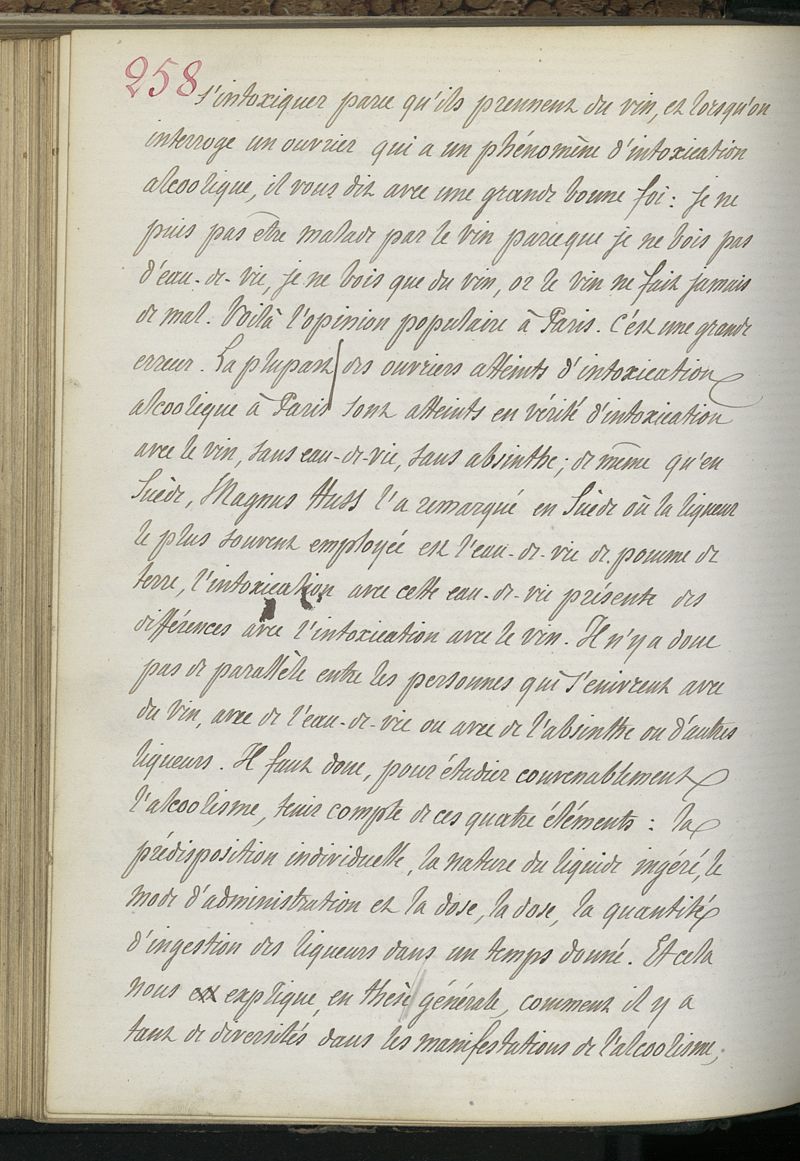 258
s'intoxiquer parce qu'ils prennent du vin, et lorsqu'on
interroge un ouvrier qui a un phénomène d'intoxication
alcoolique, il vous dit avec une grande bonne foi : je ne
puis pas être malade par le vin parceque je ne bois pas
d'eau-de-vie, je ne bois que du vin, or le vin ne fait jamais
de mal. Voilà l'opinion populaire à Paris. C'est une grande
erreur. La plupart des ouvriers atteints d'intoxication
alcoolique à Paris sont atteints en vérité d'intoxication
avec le vin, sans eau-de-vie, sans absinthe ; de même qu'en
Suède, Magnus Huss l'a remarqué en Suède où la liqueur
le plus souvent employée est l'eau-de-vie de pomme de
terre, l'intoxication avec cette eau-de-vie présente des
différences avec l'intoxication avec le vin. Il n'y a donc
pas de parallèle entre les personnes qui s'enivrent avec
du vin, avec de l'eau-de-vie ou avec de l'absinthe ou d'autres
liqueurs. Il faut donc, pour étudier convenablement
l'alcoolisme, tenir compte de ces quatre éléments : la
prédisposition individuelle, la nature du liquide ingéré, le
mode d'administration et la dose, la dose, la quantité
d'ingestion des liqueurs dans un temps donné. Et cela
nous explique, en thèse générale, comment il y a
tant de diversités dans les manifestations de l'alcoolisme,